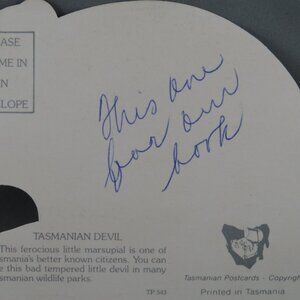 EASE
ME IN
N
ELOPE
This one
for our
book
TASMANIAN DEVIL
This ferocious little marsupial is one of
smania's better known citizens. You can
e this bad tempered little devil in many
asmanian wildlife parks.
TP 543
Tasmanian Postcards - Copyrig
Printed in Tasmania